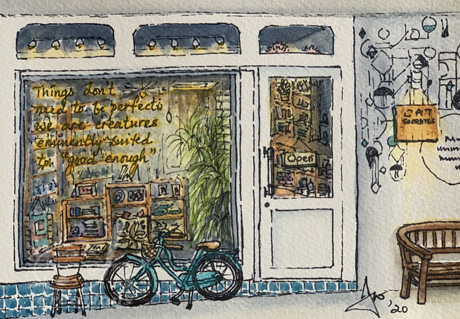 Things don't
need to be perfect
we are creatures
eminently suited
to "good enough"
Open
CAT
SOCRATES
'20